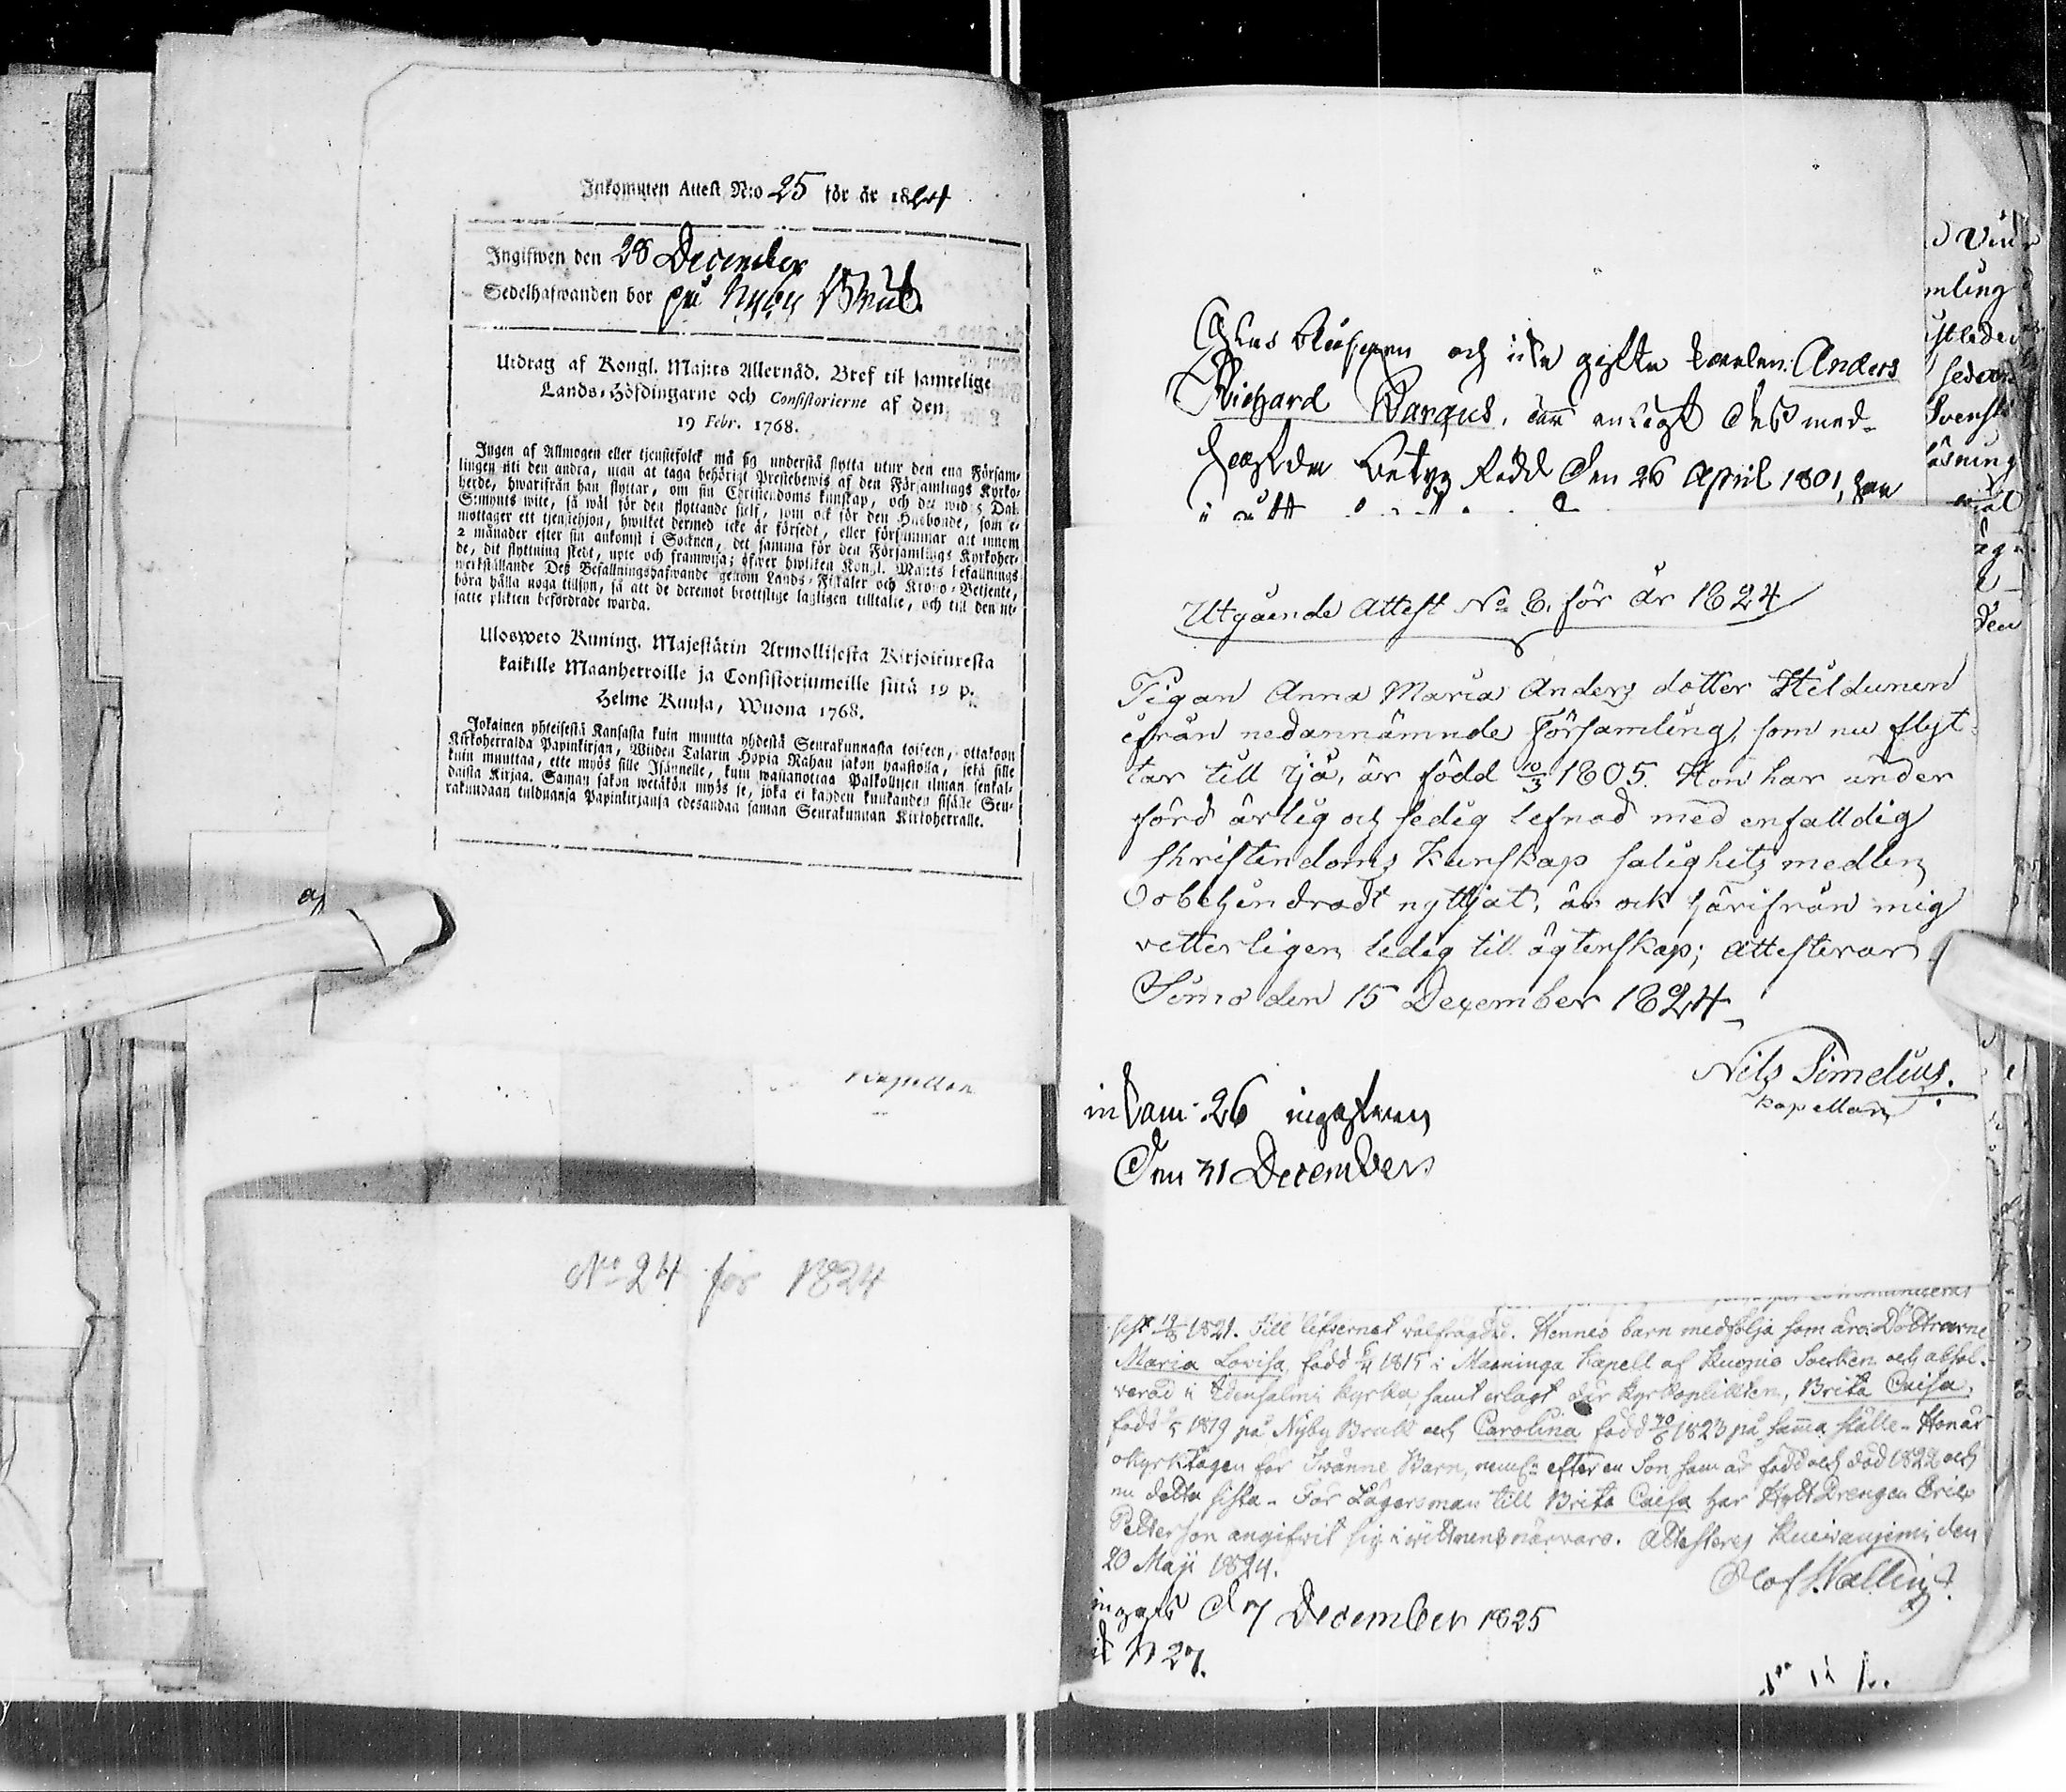 Inkommen Attest N:o 25 för år 1824
Ingifwen den 28 December
Sedelhafwanden bor på Nyby Bruk
Utdrag af Kongl. Maj:ts Allernåd. Bref til samtelige
Lands-Höfdingarne och Consistorierne af den
19 Febr. 1768.
Ingen af Allmogen eller tjenstefolck må sig understå flytta utur den ena Försam-
lingen uti den andra, utan at taga behörigt Prestebewis af den Församlings Kyrko-
herde, hwarifrån han flyttar, om sin Christendoms kunskap, och det wid 5 Dal.
S:mynts wite, så wäl för den flyttande sielf, som ock för den Husbonde, som e-
mottager ett tjenstehjon, hwilket dermed icke är försedt, eller försummar att innom
2 månader efter sin ankomst i Socknen, det samma för den Församlings Kyrkoher-
de, dit flyttning skedt, upte och framwisa; öfwer hwilken Kongl. Maj:ts befallnings
werkställande Deß Befallningshafwande genom Lands-Fiskaler och Krono-Betjente,
böra hålla noga tillsyn, så att de deremot brottslige lagligen tilltalte, och till den ut-
satte plikten befordrade warda.
Ulosweto Kuning. Majestätin Armollisesta Kirjoituresta
kaikille Maanherroille ja Consistoriumeille siitä 19 p.
Helme Kuusa, Wuona 1768.
Jokainen yhteisestä Kansasta kuin muutta yhdestä Seurakunnasta toiseen, ottakoon
Kirkoherralda Papinkirjan, Wiiden Talarin Hopia Rahan sakon haastolla, sekä sille
kuin muuttaa, ette myös sille Isännelle, kuin wastanottaa Palkollisen ilman senkal-
daista Kirjaa. Saman sakon wetäkön myös se, joka ei kahden kuukauden sisälle Seu-
rakundaan tulduansa Papinkirjansa edesandaa saman Seurakunnan Kirkoherralle.
Kapellan
No 24 för 1824
och icke gifta Anders
Richard Barqus, är enligt des med-
hafde Betyg född den 26 April 1801, har
Utgående Attest No 6. för år 1824
Pigan Anna Maria Anders dotter Hildunen
ifrån nedannämnde Församling, som nu flyt-
tar till Ijå, är född 10/3 1805. Hon har under
förd ärlig och sedig lefnad med enfalldig
Christendoms Kunskap salighets medlen
Oobehindradt nyttjat, är ock härifrån mig
vetterligen ledig till ägtenskap; attesterar
Simo den 15 December 1824
Nils Simelius.
kapellan
26 ingifwen
Den 31 December
communicerat
sist 1821. Till lefvernet välfrägdad. Hennes barn medfölja som äro: Döttrarne
Maria Lovisa, född 1815 i Maaninga Kapell af Kuopio Socken och absol-
verad i Idensalmi kyrka, samt erlagt der kyrkoplikten, Brita Caisa,
född 1819 på Nyby Bruk och Carolina född 30/6 1823 på samma ställe. Hon är
okyrktagen för Tvänne Barn, neml. efter en Son som är född och död 1822 och
nu detta sista. För Lägersman till Brita Caisa har HyttDrengen Eric
Petterson angifvit sig i vittnens närvaro. Attesteres Kuivaniemi den
20 Maji 1824.
Olof Wallin
d 7 December 1825
N 27.